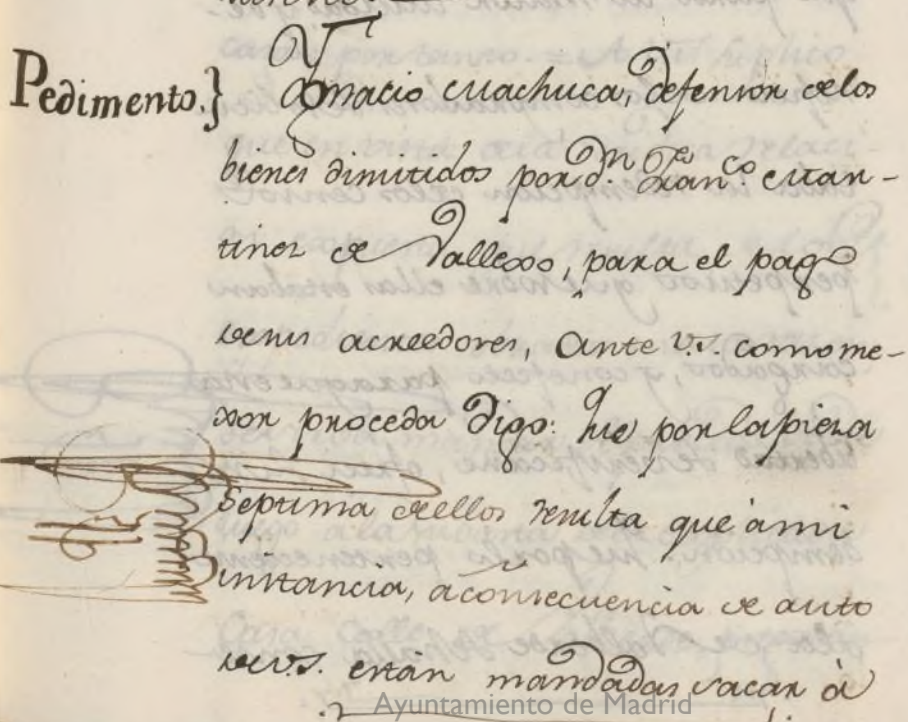 Pedimento.} Ygnacio Machuca, defensor delos
bienes dimitidos por Dn. Franco. Mar-
tinez de Vallexo, para el pago
desus acreedores, Ante V.S. como me-
xor proceda Digo: Que por lapieza
septima deellos resulta que àmi
instancia, aconsecuencia de auto
deV.S. están mandadas sacar à
Ayuntamiento de Madrid